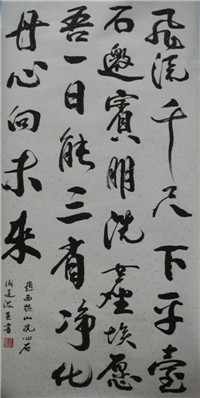 飛流千尺下平臺
石邀賓朋洗塵埃愿
吾一日能三省净化
丹心向未来
洗心石